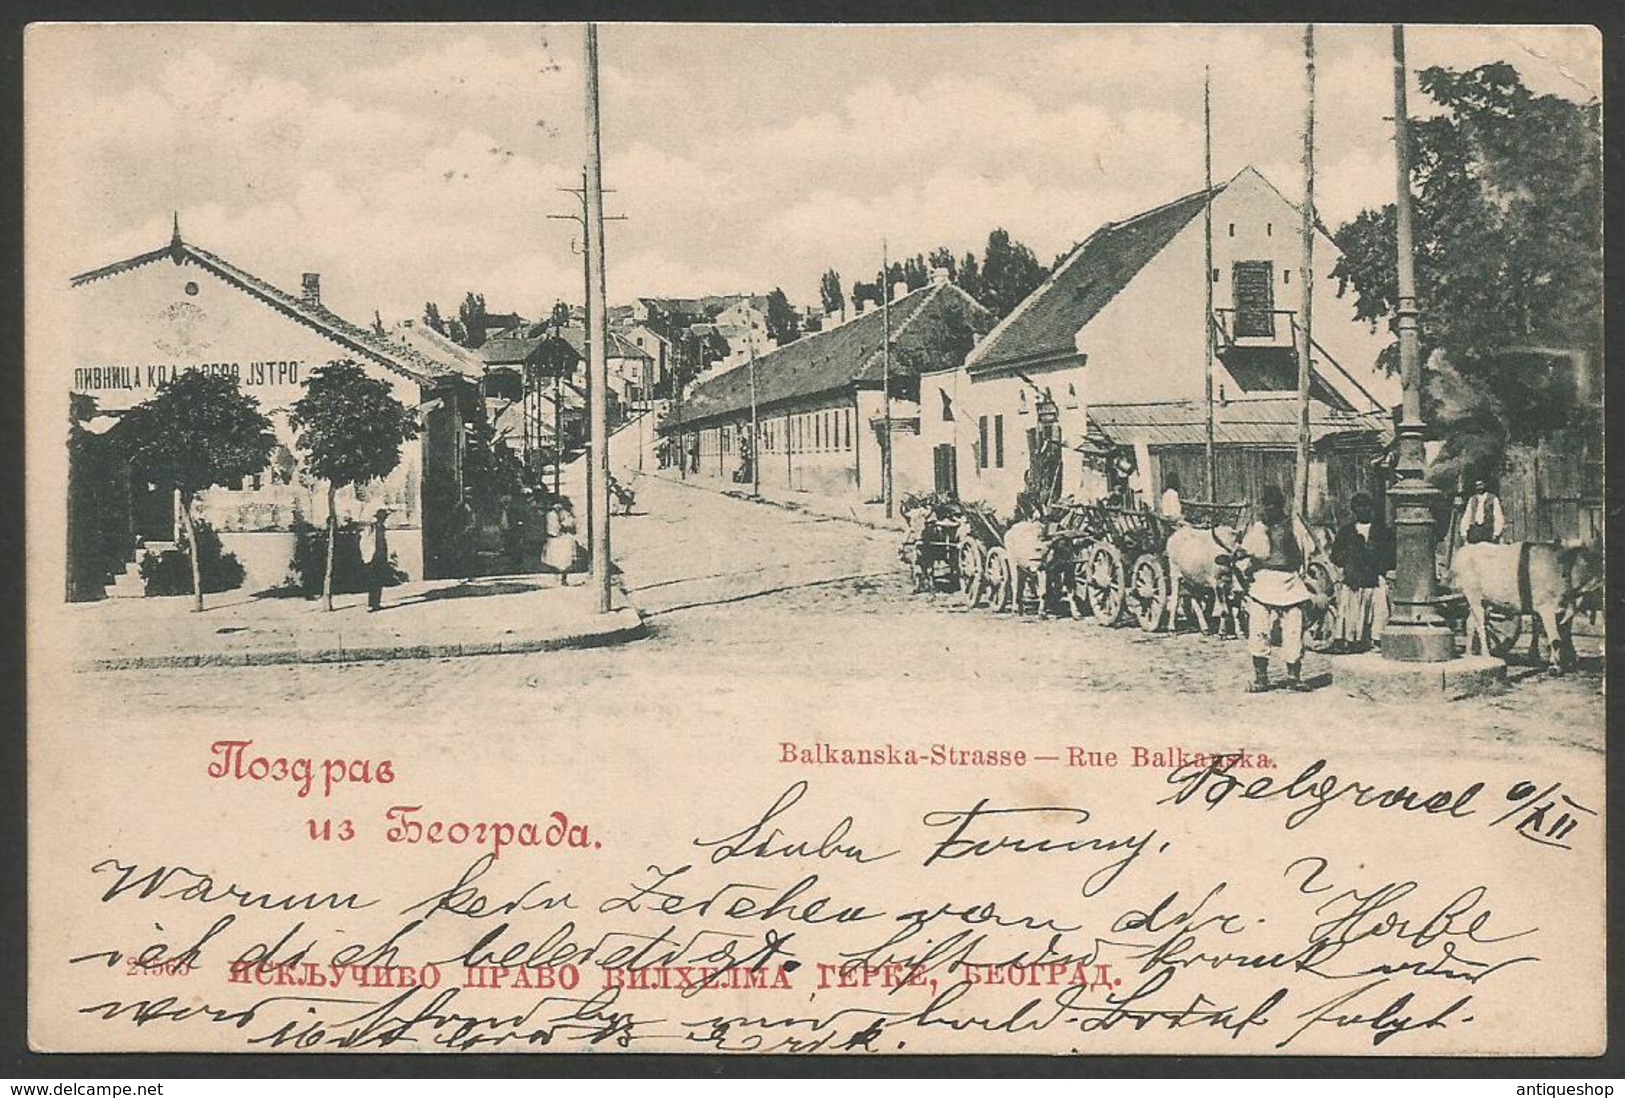 ПИВНИЦА КОД ДОБРО ЈУТРО
Поздрав
из Београда.
Balkanska-Strasse — Rue Balkanska.
Belgrad 9/XII
Liebe Fanny.
Warum kein Zeichen von dir? Habe
ich dich beleidigt. Bist du krank oder
was
mir bald. Brief folgt.
Erik.
27565 ИСКЉУЧИВО ПРАВО ВИЛХЕЛМА ГЕРКЕ, БЕОГРАД.
delcampe.net
antiqueshop